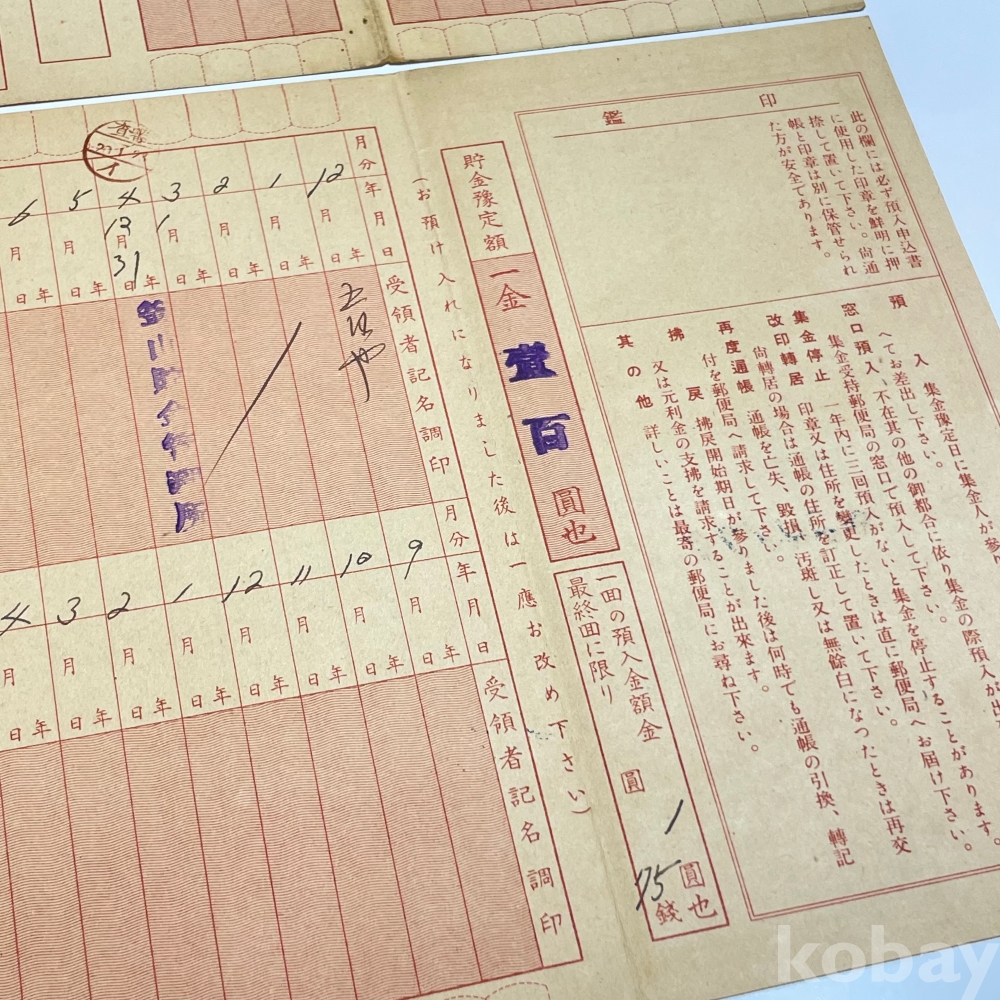 印鑑
此の欄には必ず預入申込書
に使用した印章を鮮明に押
捺して置いて下さい。尚通
帳と印章は別に保管せられ
た方が安全であります。
預入 集金豫定日に集金人が参り
へてお差出し下さい。
窓口預入 不在其の他の御都合に依り集金の際預入が出
集金受持郵便局の窓口で預入して下さい。
集金停止 一年內に三回預入がないと集金を停止することがあります。
改印轉居 印章又は住所を變更したときは直に郵便局へお届け下さい。
尙轉居の場合は通帳の住所を訂正して置いて下さい。
再度通帳 通帳を亡失、毀損、汚斑し又は無餘白になつたときは再交
付を郵便局へ請求して下さい。
拂戻 拂戻開始期日が參りました後は何時でも通帳の引換、轉記
又は元利金の支拂を請求することが出來ます。
其の他 詳しいことは最寄の郵便局にお尋ね下さい。
貯金豫定額
一金 壹百 圓也
一面の預入金額金 圓
最終面に限り 1 圓也
75 錢
(お預け入れになりました後は一應お改め下さい)
月分 12 1 2 3 4 5 6
年月日 年月日 年月日 年月日 年月日 1 年月日 13 31 年月日 年月日
受領者記名調印
月分 9 10 11 12 1 2 3 4
年月日 年月日 年月日 年月日 年月日 年月日 年月日 年月日 年月日
受領者記名調印
kobay